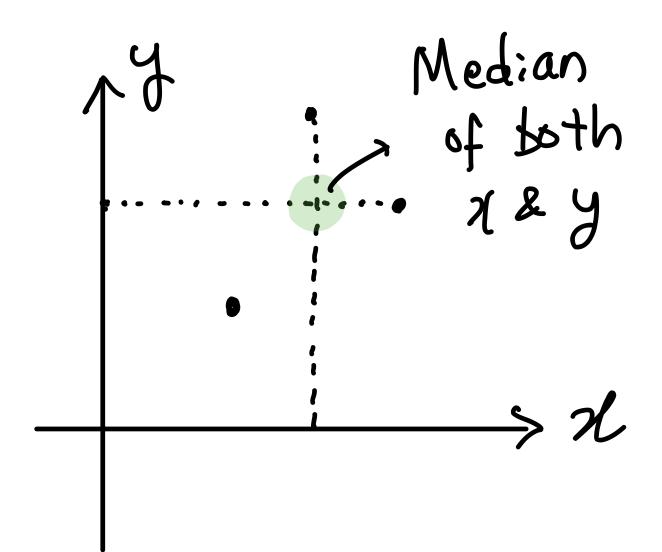 y
Median
of both
x & y
x